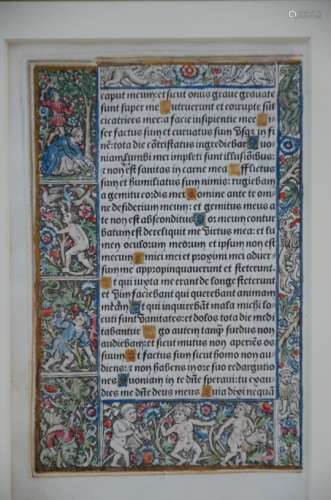 caput meum: et sicut onus graue grauate
sunt super me Putruerunt et corrupte sūt
cicatrices mee: a facie insipientie mee
ser factus sum et curuatus sum Vsq in fi
nē: tota die cōtristatus ingrediebar Quo
niam lumbi mei impleti sunt illusiōibus:
et non est sanitas in carne mea Afflictus
sum et humiliatus sum nimis: rugiebam
a gemitu cordis mei Domine ante te om
ne desideriū meum: et gemitus meus a
te non est absconditus Cor meum contur
batum est dereliquit me Virtus mea: et lu
men oculorum meorum et ipsum non est
mecum Amici mei et proximi mei aduer
sum me appropinquauerunt et steterunt
Et qui iuxta me erant de longe steterunt
et Vim faciebant qui querebant animam
meam Et qui inquirebant mala michi lo
cuti sunt Vanitates: et dolos tota die medi
tabantur Ego autem tanq̄ surdus non
audiebam: et sicut mutus non aperiēs os
suum Et factus sum sicut homo non audi
ens: et non habens in ore suo redargutio
nes Quoniam in te dñe speraui: tu exau
dies me dñe deus meus Quia dixi nequā